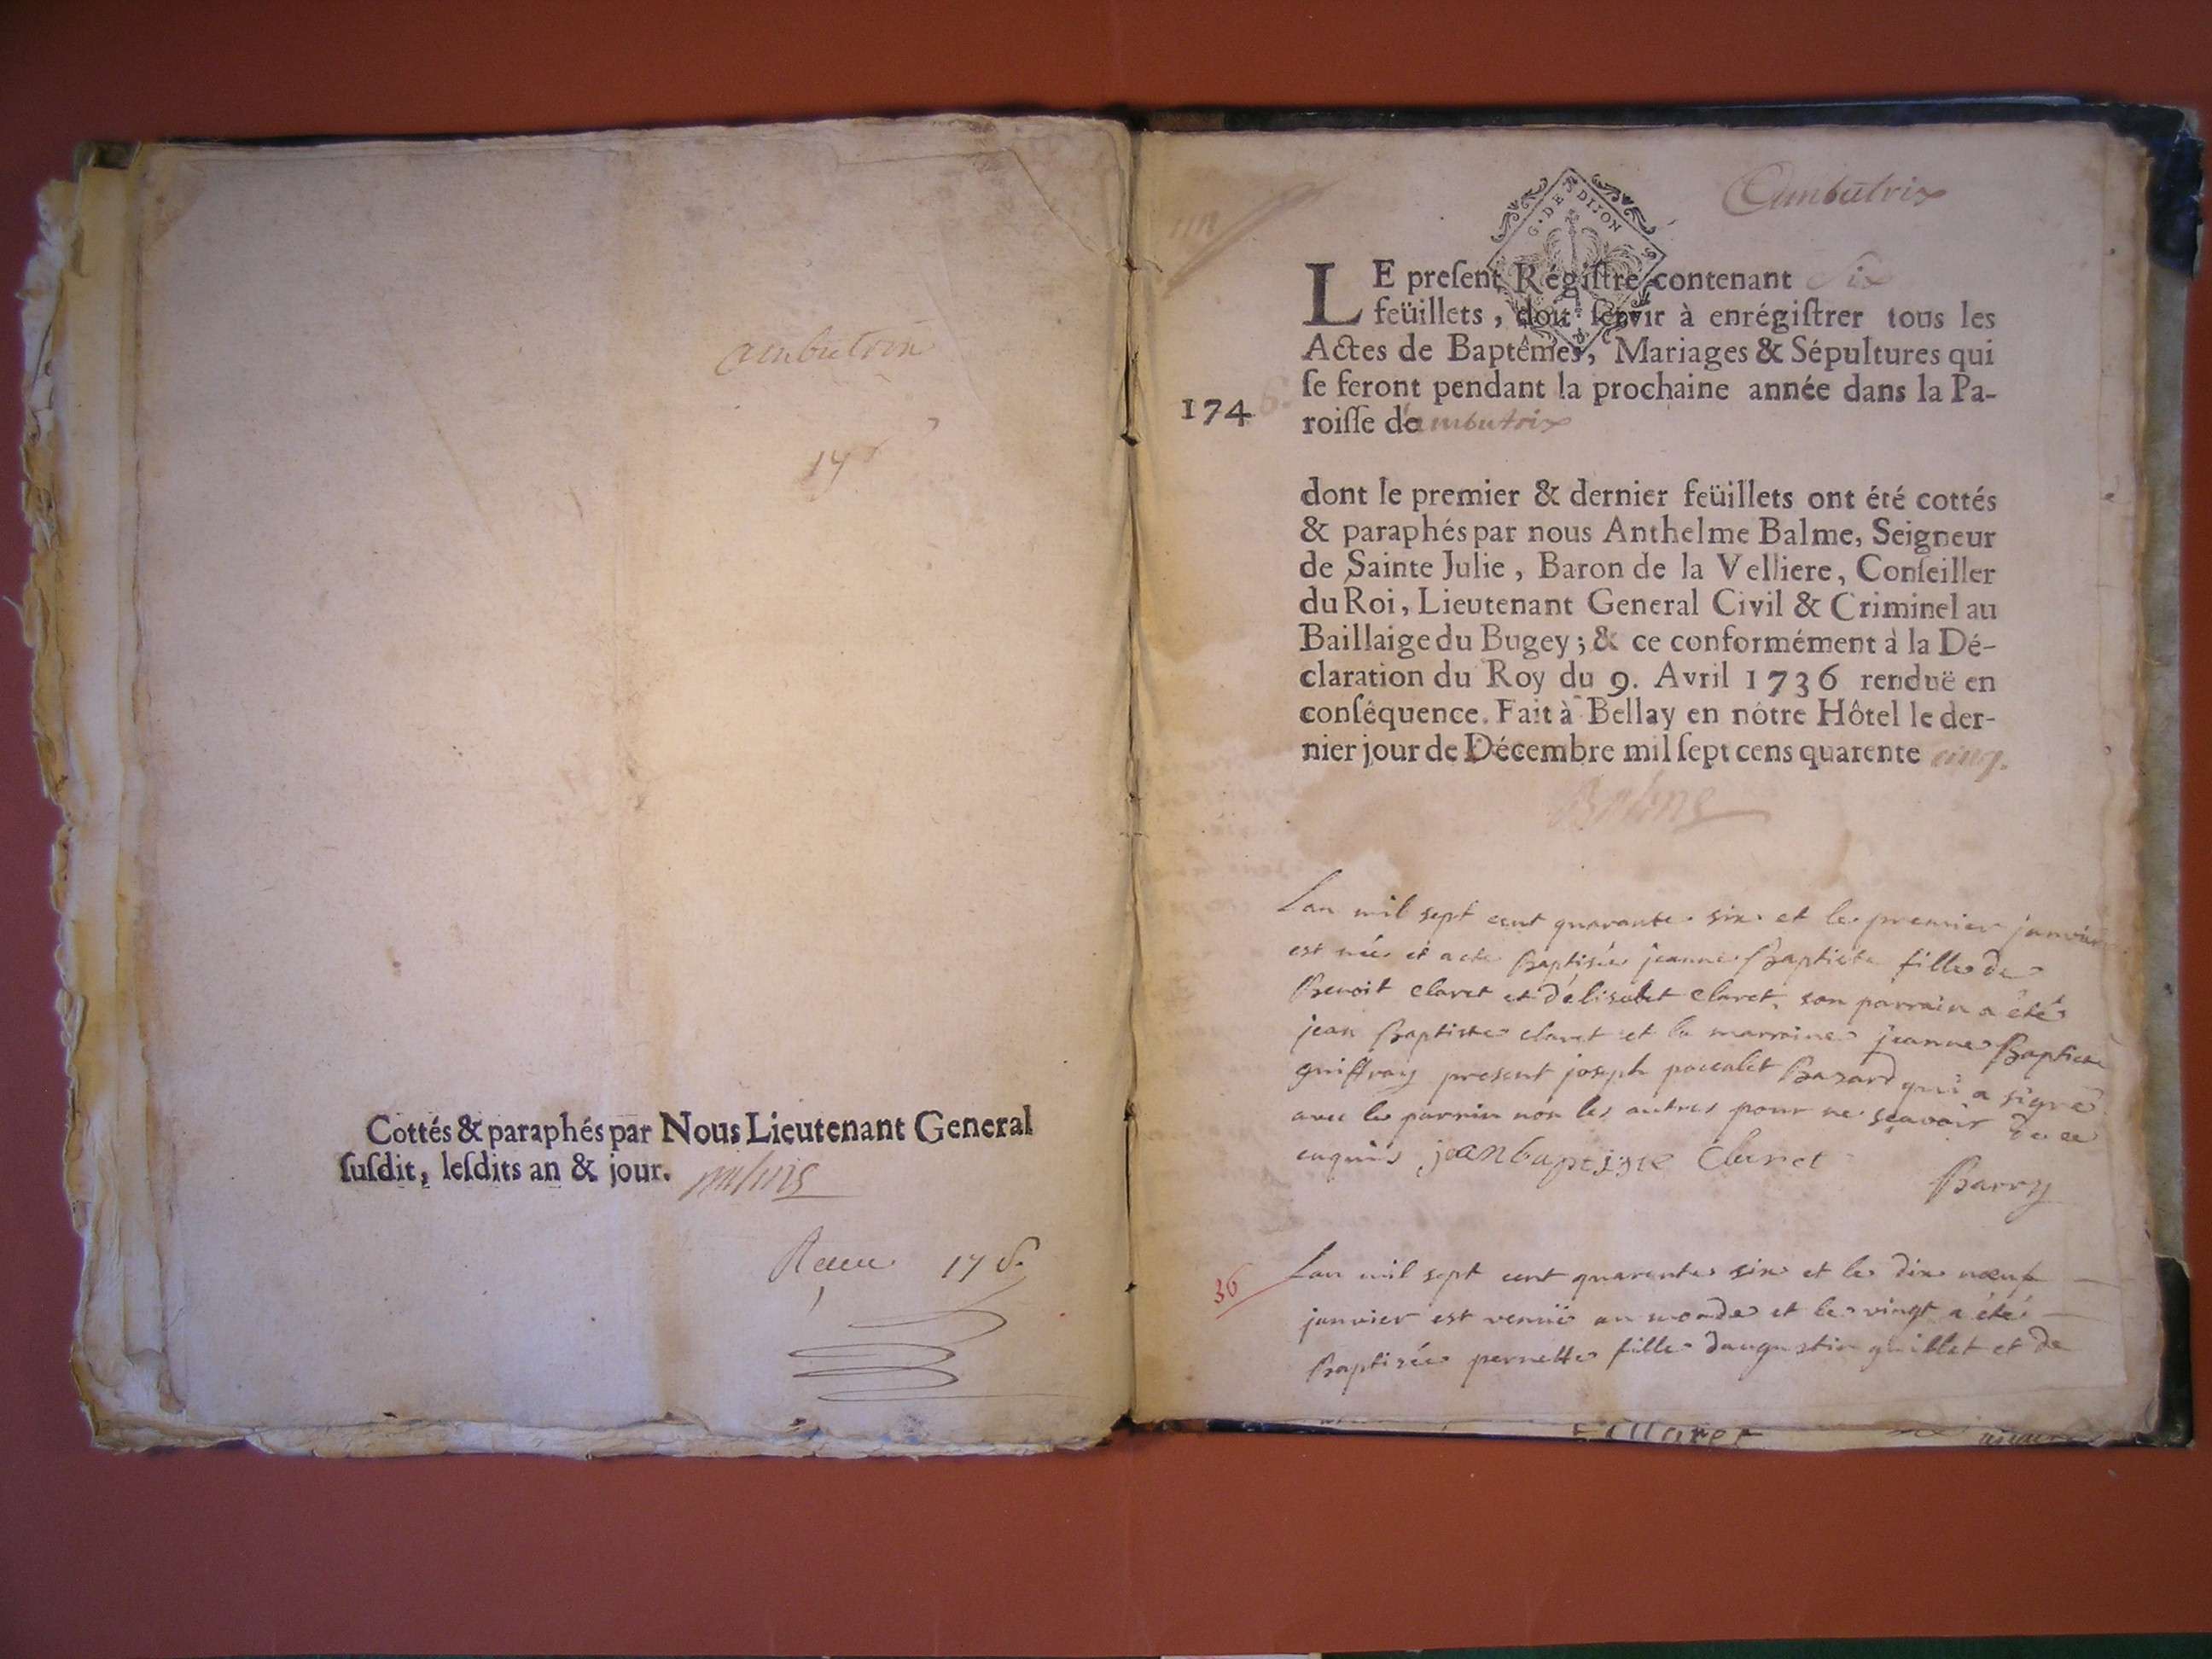 ambutrix
Cottés & paraphés par Nous Lieutenant General
ſuſdit, leſdits an & jour. Balme
G. DE DIJON
Ambutrix
LE preſent Régiſtre contenant Six
feüillets, doit ſervir à enrégiſtrer tous les
Actes de Baptêmes, Mariages & Sépultures qui
ſe feront pendant la prochaine année dans la Pa-
174
roiſſe de ambutrix
dont le premier & dernier feüillets ont été cottés
& paraphés par nous Anthelme Balme, Seigneur
de Sainte Julie, Baron de la Velliere, Conſeiller
du Roi, Lieutenant General Civil & Criminel au
Baillaige du Bugey; & ce conformément à la Dé-
claration du Roy du 9. Avril 1736 renduë en
conſéquence. Fait à Bellay en nôtre Hôtel le der-
nier jour de Décembre mil ſept cens quarente cinq.
Balme
Lan mil sept cent quarante six et le premier janvier
est née et a eté Baptisée jeanne Baptiste fille de
Benoit Claret et d'élisabet Claret, son parrain a été
jean Baptiste claret et la marraine jeanne Baptiste
guiffray present joseph pocalet qui a signé
avec le parrain non les autres pour ne sçavoir de ce
enquis jeanbaptiste Claret
Barry
36
Lan mil sept cent quarante six et le dix neuf
janvier est venüe au monde et le vingt a été
Baptisée pernette fille daugustin guillet et de